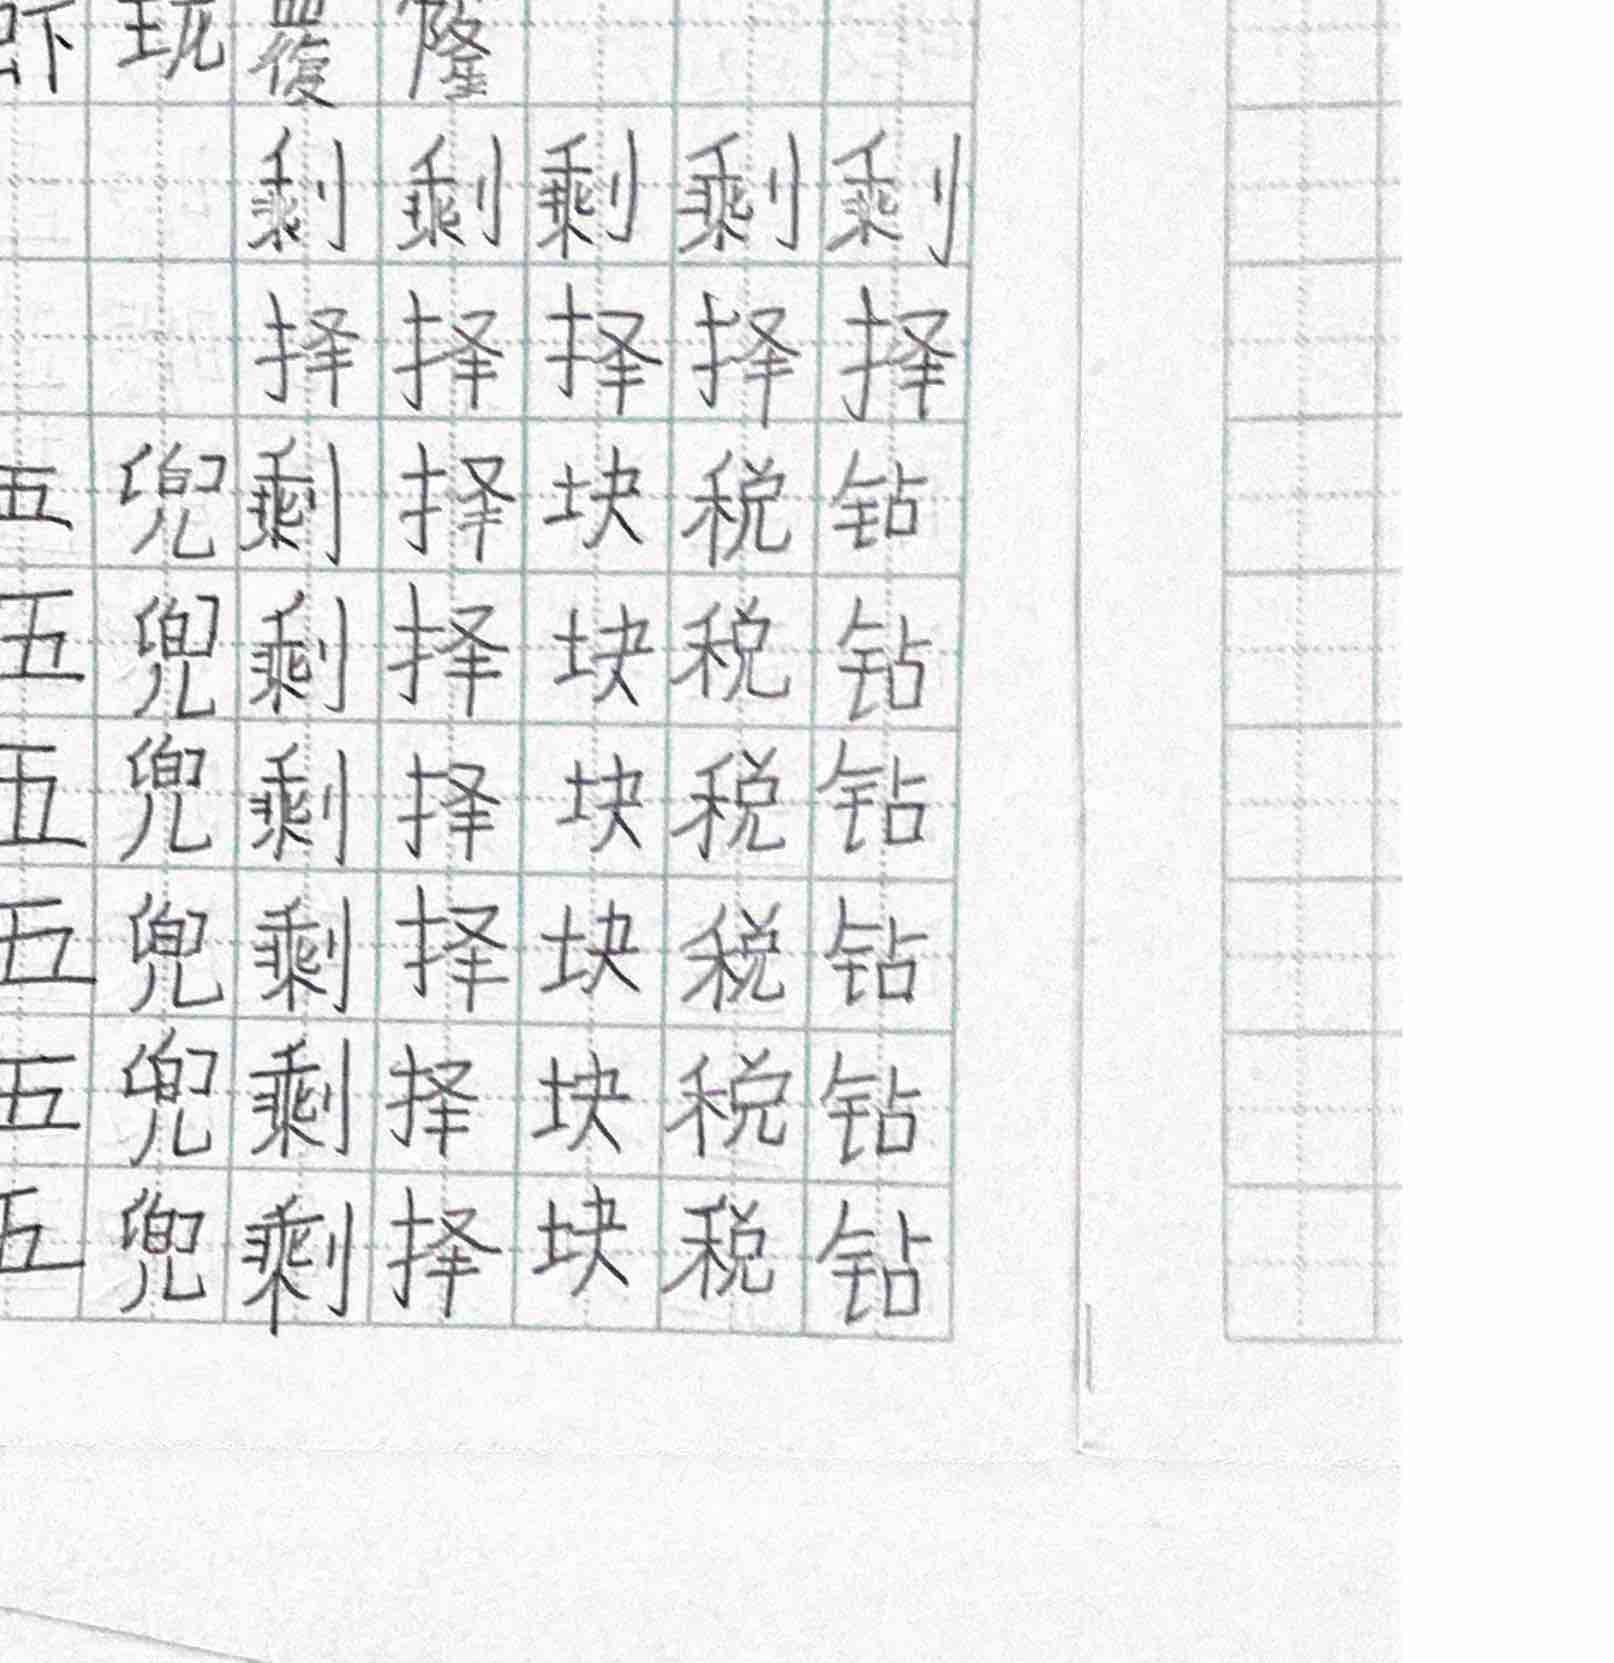 虾 玩 覆 隆
剩 剩 剩 剩 剩
择 择 择 择 择
五 兜 剩 择 块 税 钻
五 兜 剩 择 块 税 钻
五 兜 剩 择 块 税 钻
五 兜 剩 择 块 税 钻
五 兜 剩 择 块 税 钻
五 兜 剩 择 块 税 钻